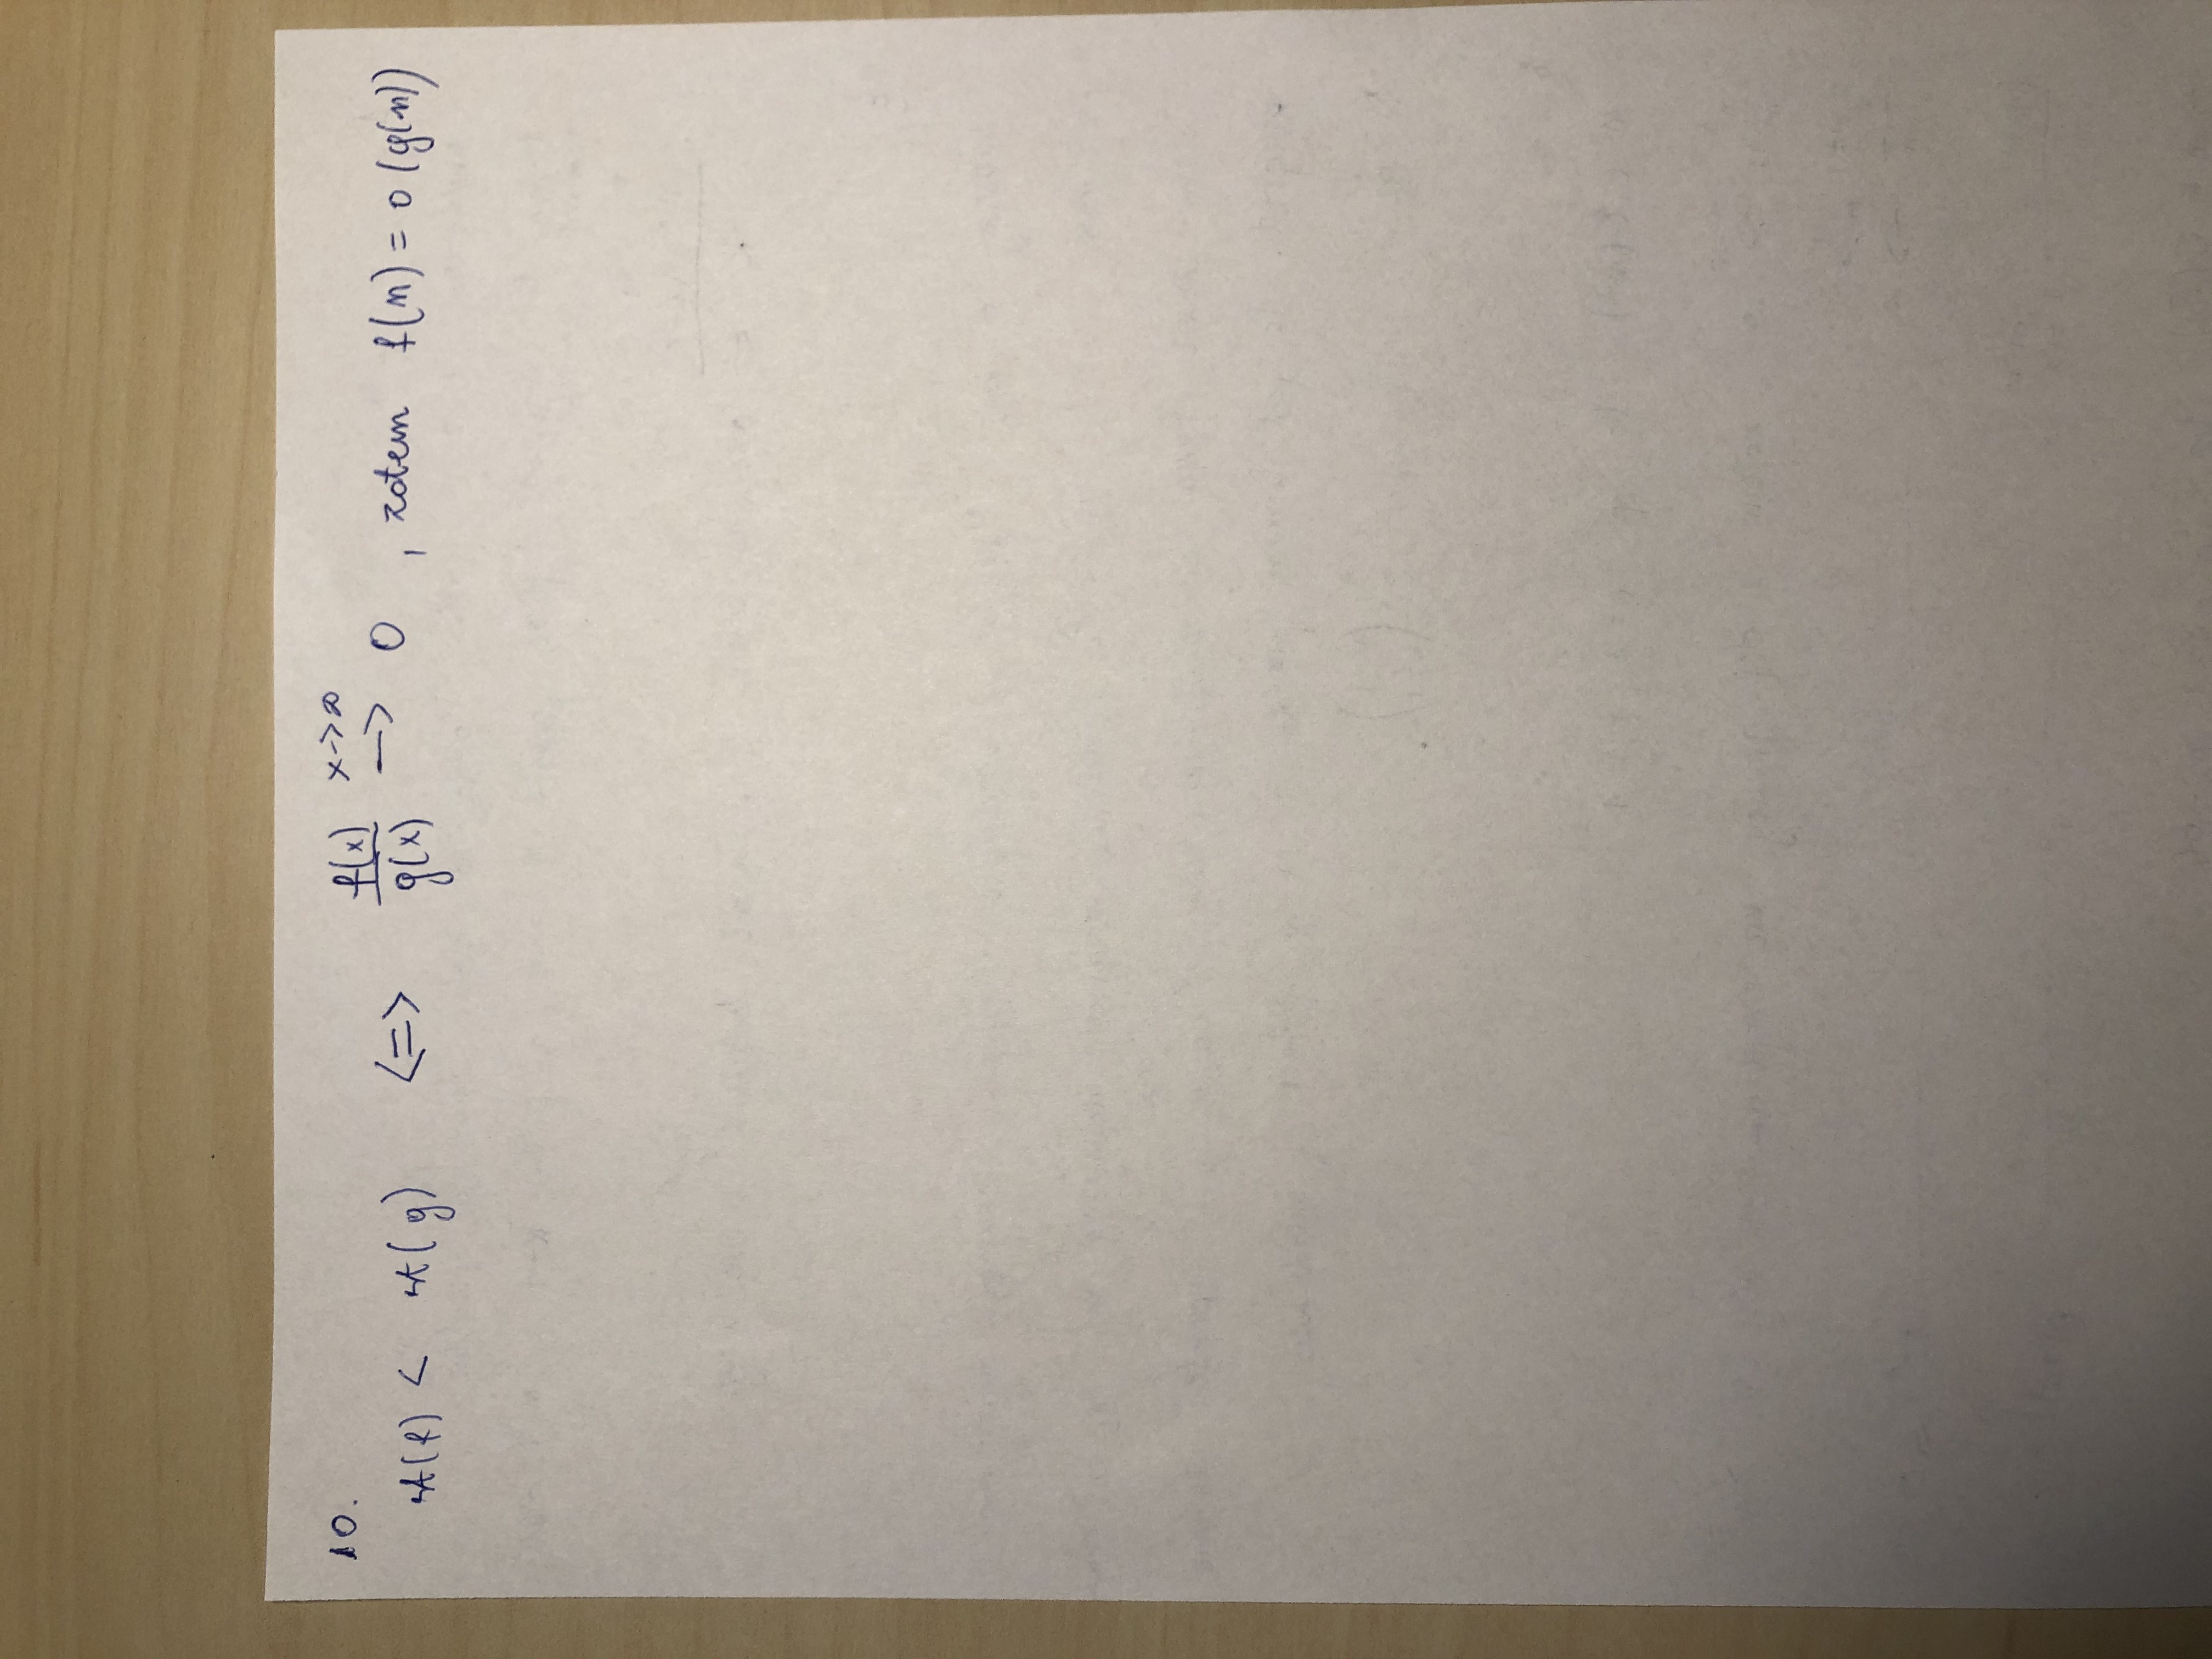 10.
st(f) < st(g) <=> f(x)/g(x) x->∞ -> 0 , zatem f(n) = o(g(n))